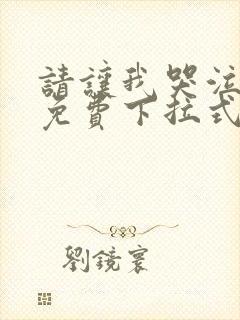 請讓我哭泣
免費下拉式
劉鏡寰